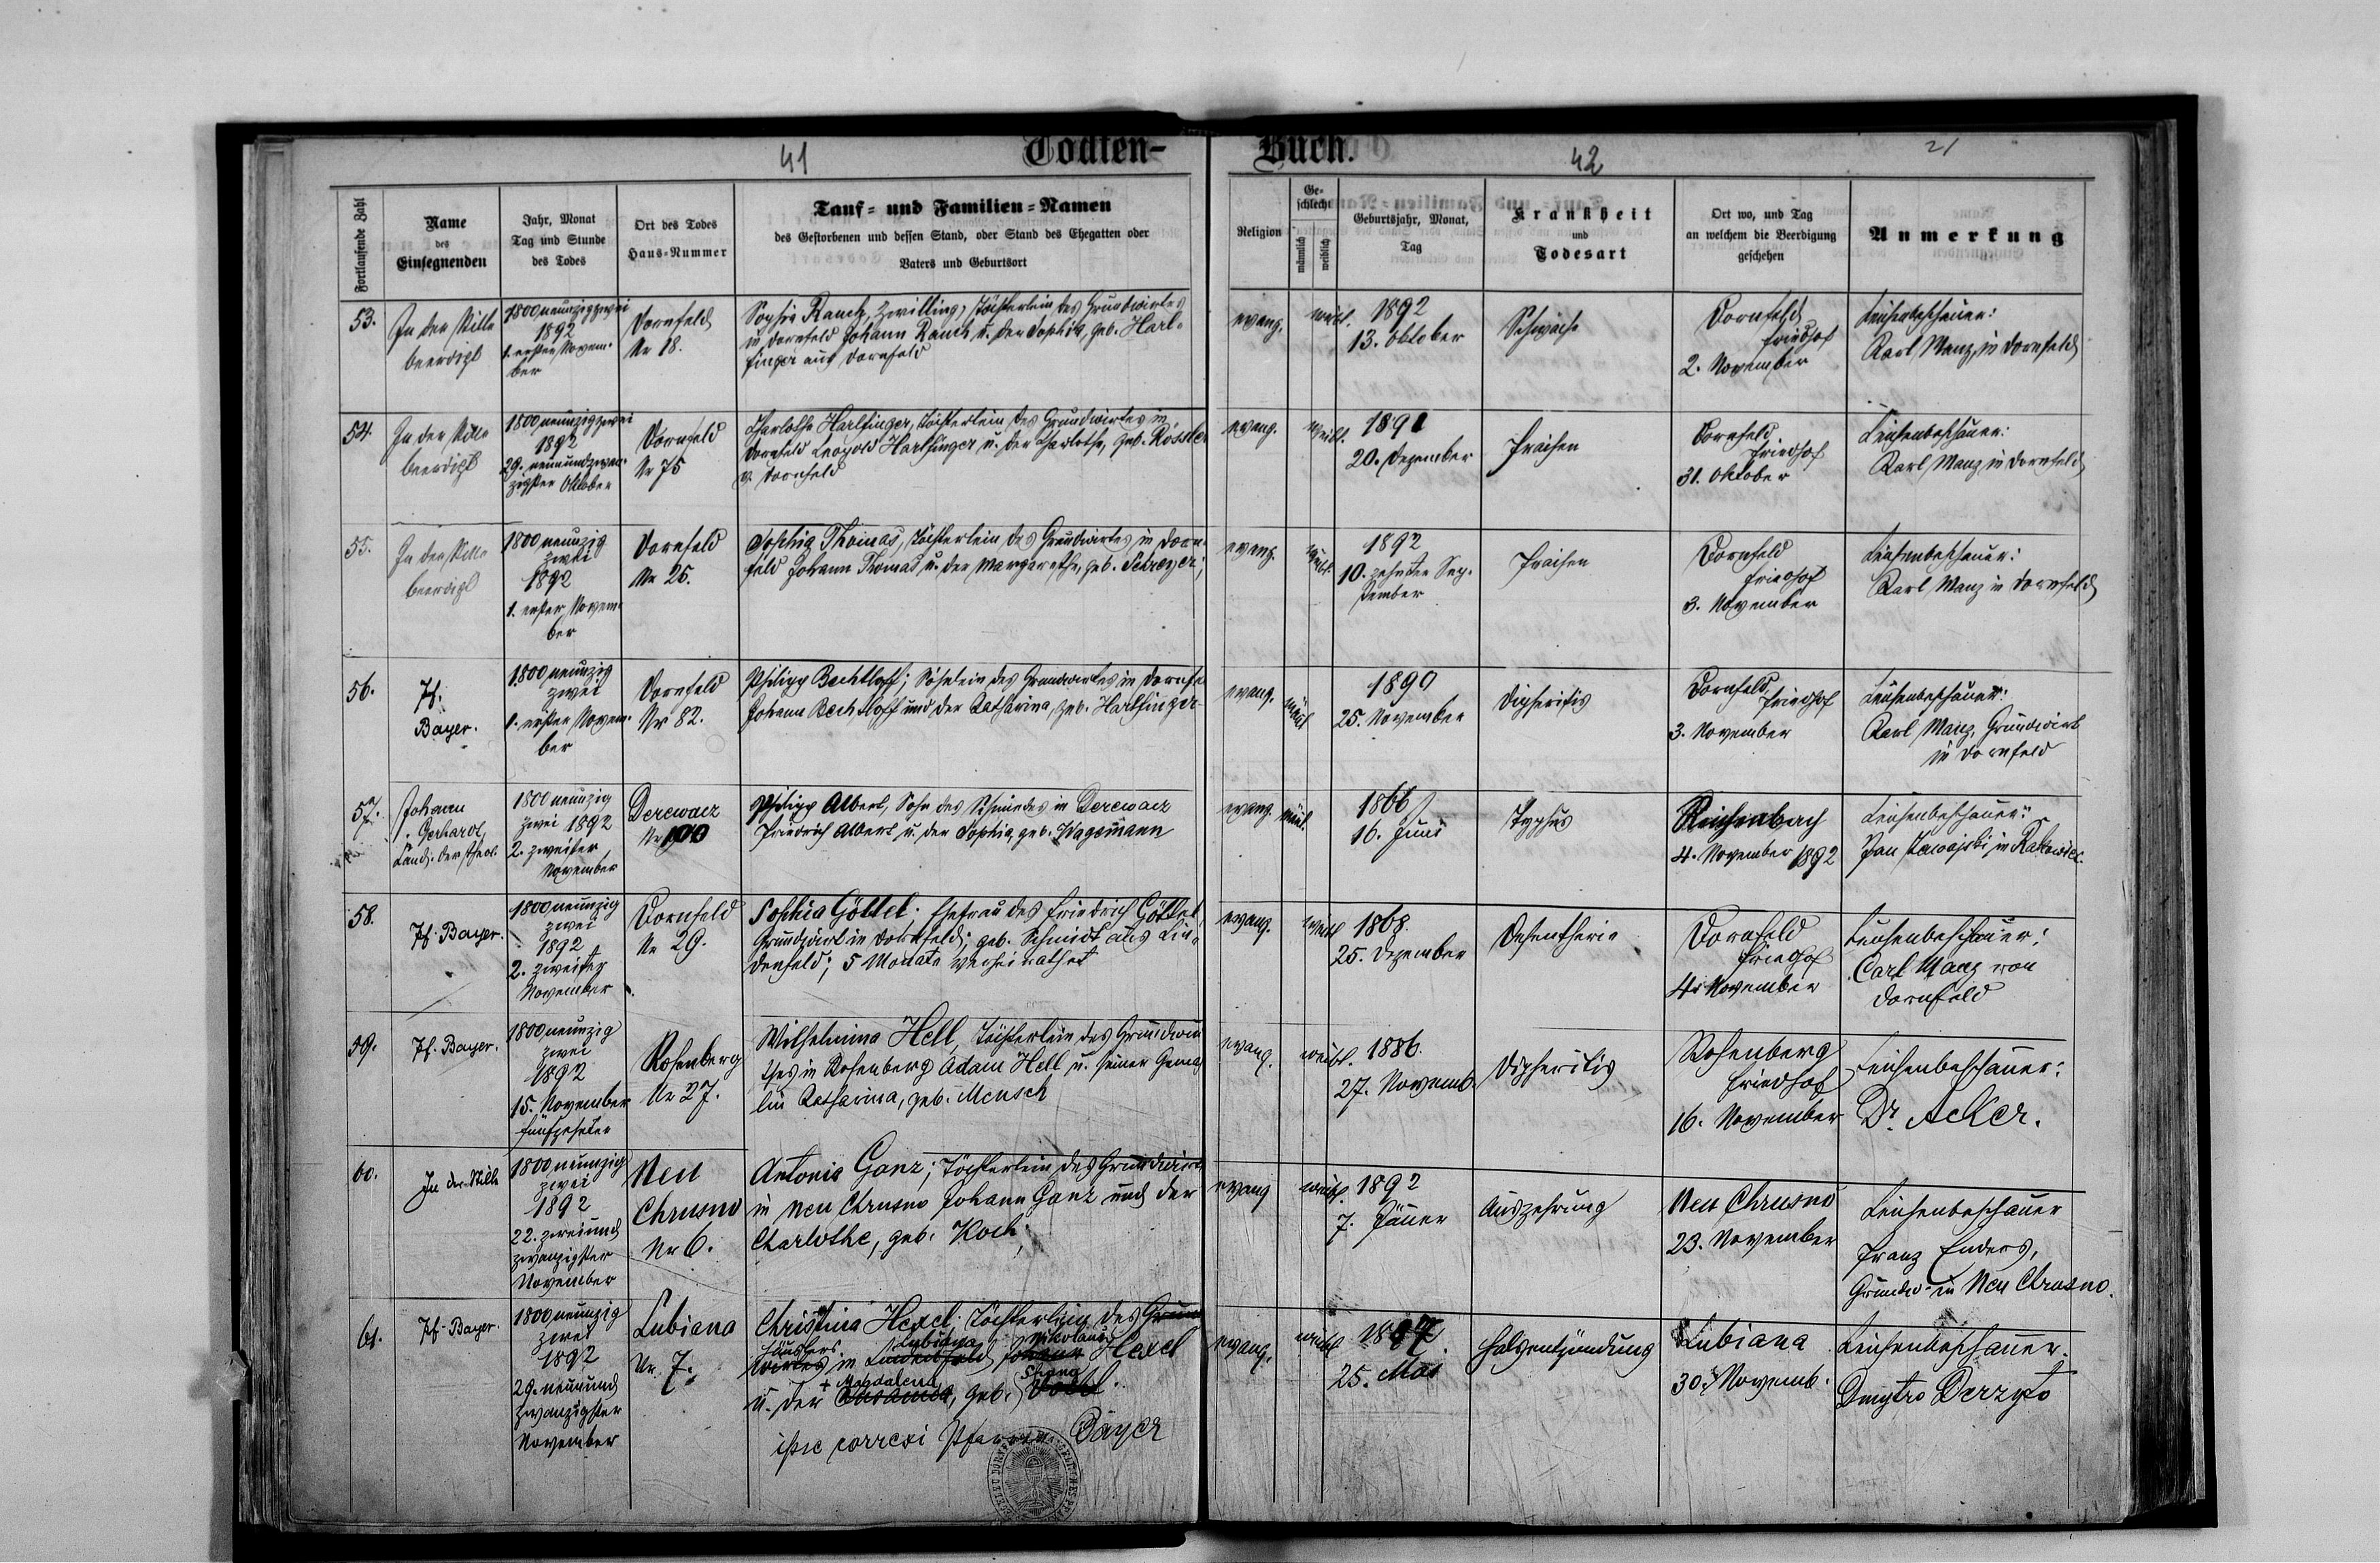 41
Todten-
Buch.
42
21
Fortlaufende Zahl
Name
des
Einsegnenden
Jahr, Monat
Tag und Stunde
des Todes
Ort des Todes
Haus-Nummer
Tauf- und Familien-Namen
des Gestorbenen und dessen Stand, oder Stand des Ehegatten oder
Vaters und Geburtsort
Religion
Ge-
schlecht
männlich
weiblich
Geburtsjahr, Monat,
Tag
Krankheit
und
Todesart
Ort wo, und Tag
an welchem die Beerdigung
geschehen
Anmerkung
53.
In der Stille
beerdigt
1800 neunzigzwei
1892
1. erster Novem-
ber
Dornfeld
Nr 18.
Sophie Rauch, Zwilling, Töchterlein des Grundwirtes
in Dornfeld Johann Rauch u. der Sophia, geb. Harl-
finger aus Dornfeld
evang.
weibl.
1892
13. Oktober
Schwäche
Dornfeld
Friedhof
2. November
Leichenbeschauer:
Karl Manz in Dornfeld
54.
In der Stille
beerdigt
1800 neunzigzwei
1892
29. neunundzwan-
zigster Oktober
Dornfeld
Nr 75
Charlotte Harlfinger, Töchterlein des Grundwirtes in
Dornfeld Leopold Harlfinger u. der Charlothe, geb. Rössler
v. Dornfeld
evang.
weibl.
1891
20. Dezember
Fraisen
Dornfeld
Friedhof
31. Oktober
Leichenbeschauer:
Karl Manz in Dornfeld
55.
In der Stille
beerdigt
1800 neunzig
zwei
1892
1. erster Novem-
ber
Dornfeld
Nr 25.
Sophia Thomas, Töchterlein des Grundwirtes in Dorn-
feld Johann Thomas u. der Margarethe, geb. Schreyer;
evang.
weibl.
1892
10. zehnter Sep-
tember
Fraisen
Dornfeld
Friedhof
3. November
Leichenbeschauer:
Karl Manz in Dornfeld
56.
Pf.
Bayer.
1800 neunzig
zwei
1. erster Novem-
ber
Dornfeld
Nr 82.
Philipp Bechtloff; Söhnlein des Grundwirtes in Dornfe
Johann Bechtloff und der Katharina, geb. Harlfinger
evang.
mänl.
1890
25. November
Dipheritis
Dornfeld
Friedhof
3. November
Leichenbeschauer:
Karl Manz, Grundwirt
in Dornfeld
57.
Johann
Gerhardt,
Cand. der Theol.
1800 neunzig
zwei 1892
2. zweiter
November
Derewacz
Nr 100
Philipp Albert, Sohn des Schmiedes in Derewacz
Friedrich Albert u. der Sophia, geb. Wagemann
evang.
mänl.
1866
16. Juni
Typhus
Reichenbach
4. November 1892
Leichenbeschauer:
Jan in Rakowiec
58.
Pf. Bayer.
1800 neunzig
zwei
1892
2. zweiter
November
Dornfeld
Nr 29.
Sophia Göttel; Ehefrau des Friedrich Göttel,
Grundwirt in Dornfeld; geb. Schmidt aus Lin-
denfeld; 5 Monate verheirathet
evang.
weibl.
1868.
25. Dezember
Desentherie
Dornfeld
Friedhof
4. November
Leichenbeschauer:
Carl Manz von
Dornfeld
59.
Pf. Bayer.
1800 neunzig
zwei
1892
15. November
fünfzehnter
Rosenberg
Nr 27.
Wilhelmina Hell, Töchterlein des Grundwir
thes in Rosenberg Adam Hell u. seiner Gemah
lin Katharina, geb. Mensch
evang.
weibl.
1886.
27. Novemb.
Dipheritis
Rosenberg
Friedhof
16. November
Leichenbeschauer:
Dr. Acker.
60.
In der Stille
1800 neunzig
zwei
1892
22. zweiund
zwanzigster
November
Neu
Chrusno
Nr 6.
Antonia Ganz; Töchterlein des Grundwirts
in Neu Chrusno Johann Ganz und der
Charlothe, geb. Koch;
evang
weibl.
1892
7. Jänner
Auszehrung
Neu Chrusno
23. November
Leichenbeschauer
Franz Enders,
Grundw. in Neu Chrusno.
61.
Pf. Bayer.
1800 neunzig
zwei
1892
29. neunund
zwanzigster
November
Lubiana
Nr. 7.
Christina Hexel; Töchterlein des Grund
Häuslers Lubiana Nikolaus
wirtes in Lindenfeld Johann Hexel
+ Magdalena
u. der Susanna, geb.
ipse correxi Pfarrer Bayer
evang.
weibl
1887.
25. Mai
Halsentzündung
Lubiana
30. Novemb.
Leichenbeschauer.
Dmytro Derzyto